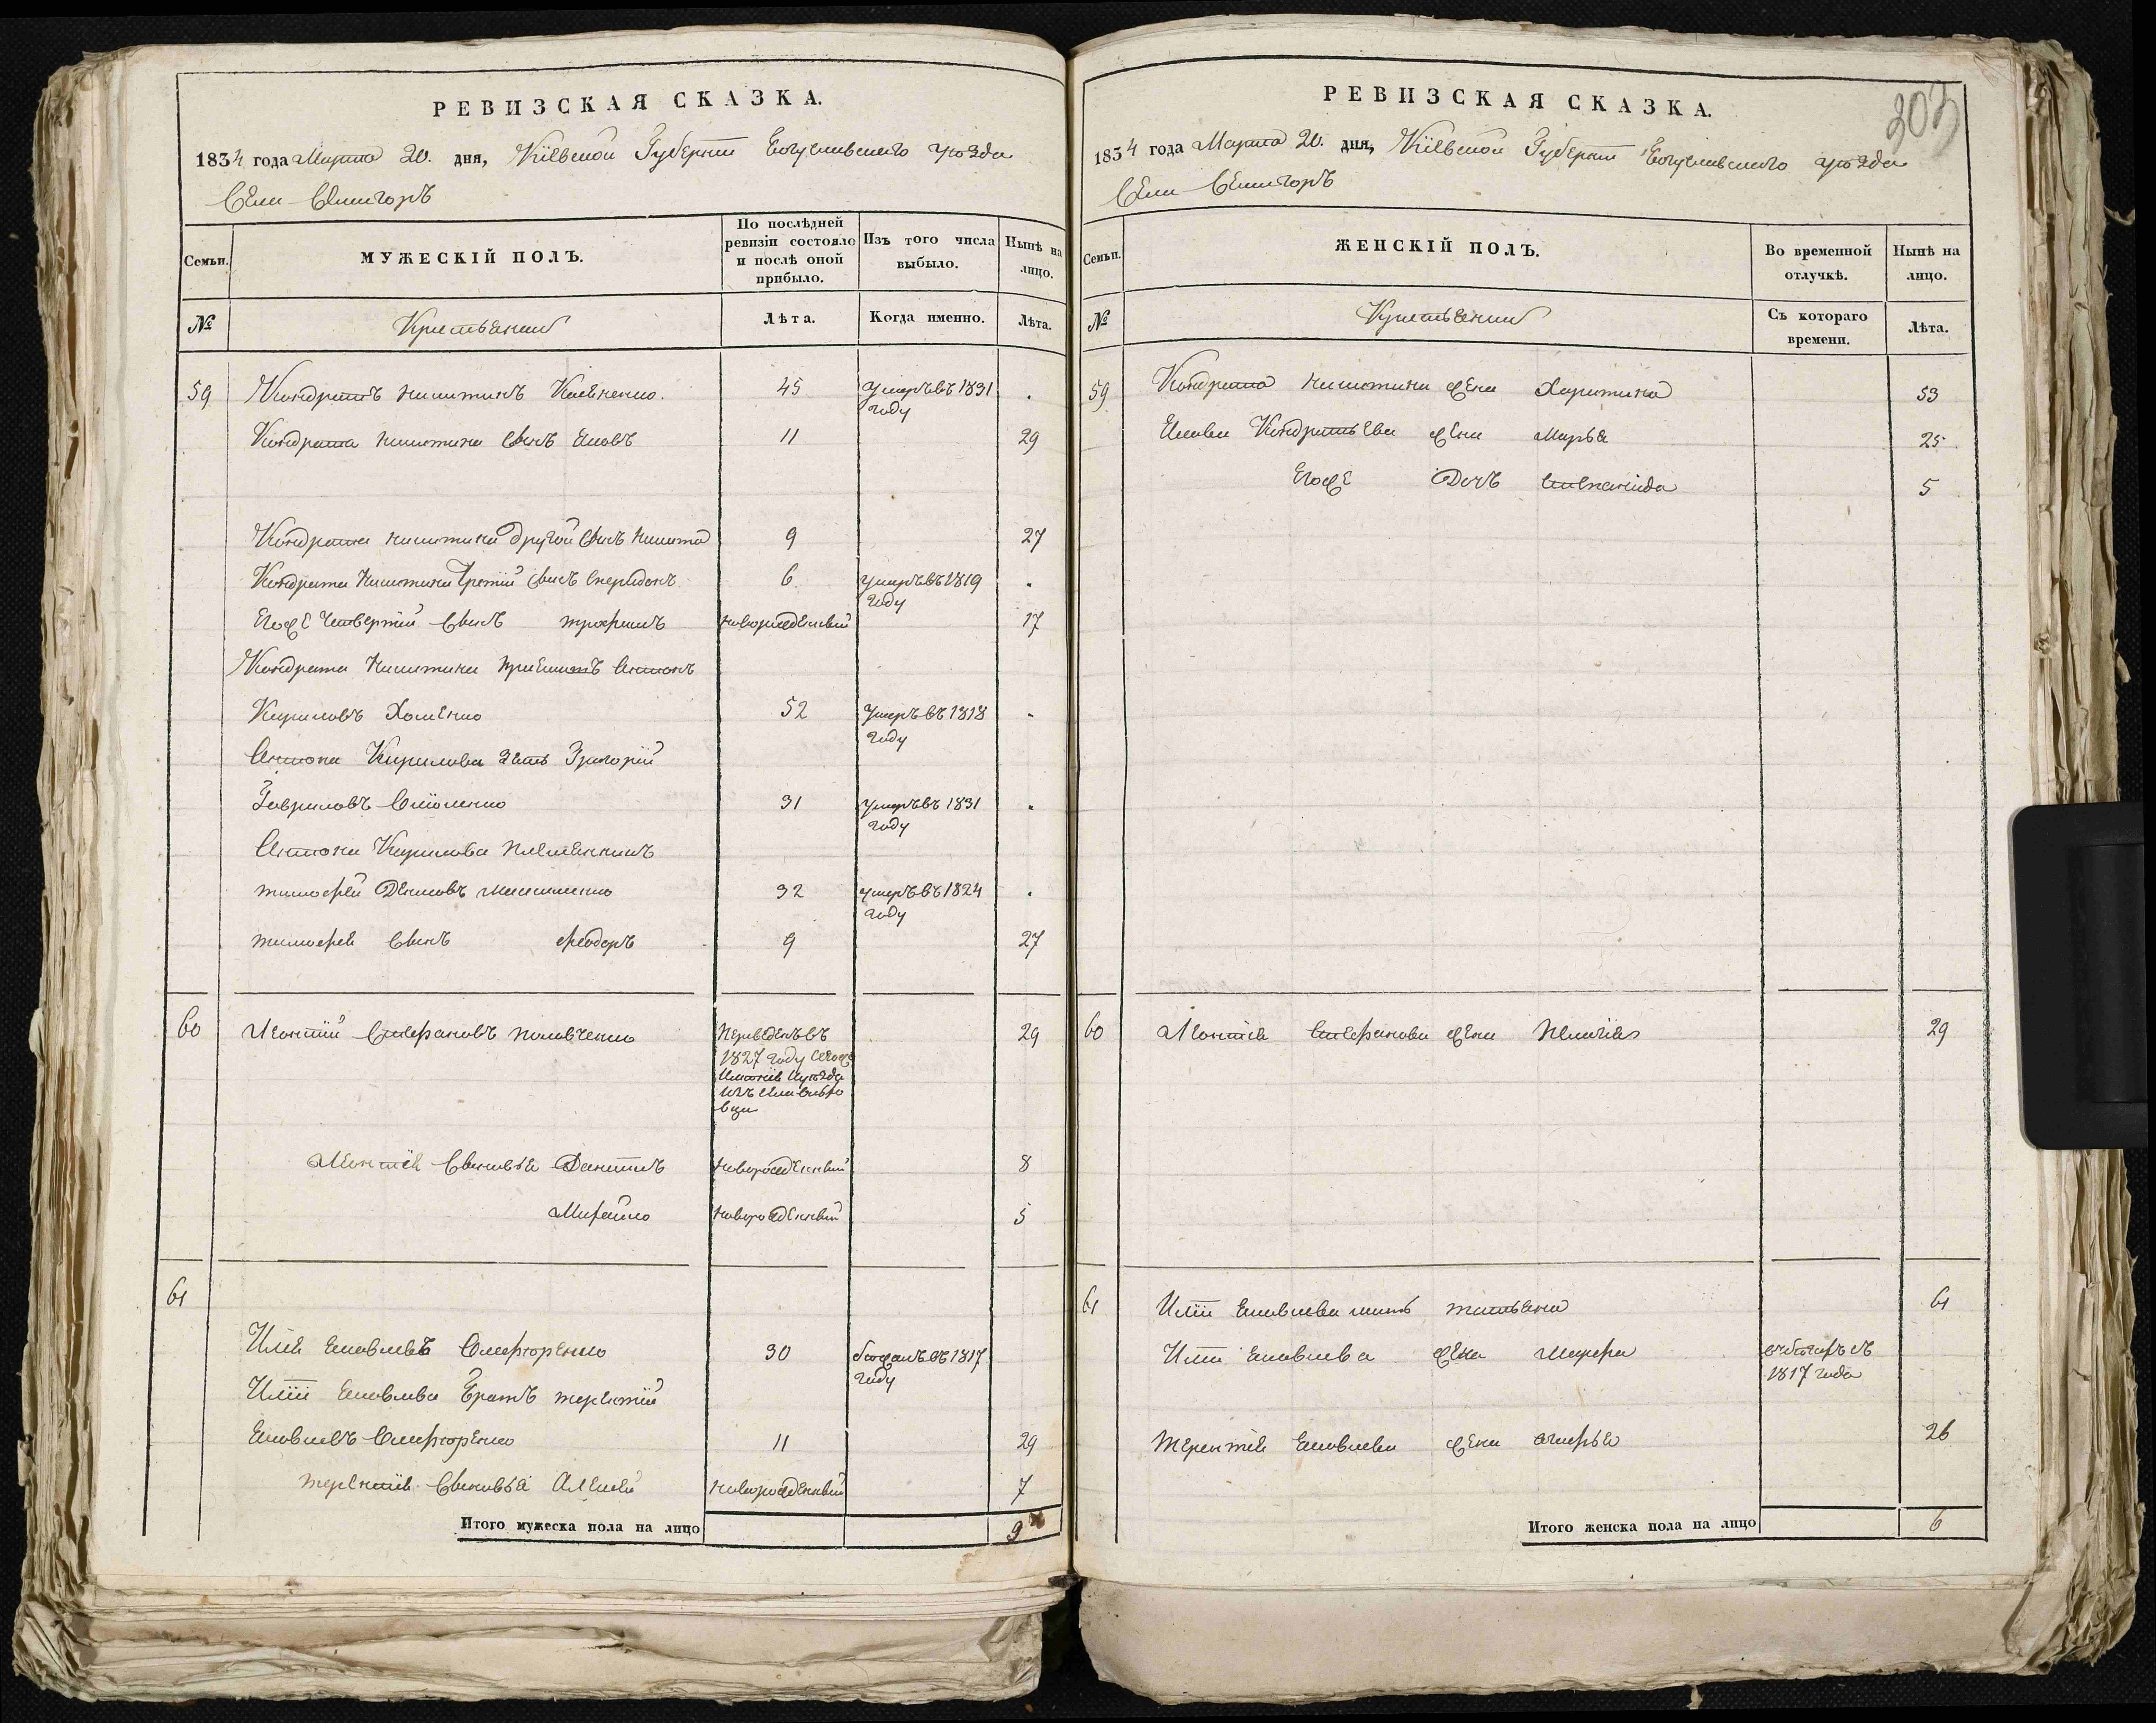 РЕВИЗСКАЯ СКАЗКА.
1834 года Марта 20. дня, Кіевской Губерніи Богуславскаго уѣзда
Села Семигоръ
Семьи.
МУЖЕСКІЙ ПОЛЪ.
По послѣдней ревизіи состояло и послѣ оной прибыло.
Изъ того числа выбыло.
Нынѣ на лицо.
№
Крестьянии
Лѣта.
Когда именно.
Лѣта.
59 Кондратъ Никитинъ 45 умеръ въ 1831 году .
Кондрата Никитина сынъ Яковъ 11 29
Кондрата Никитина другой сынъ Никита 9 27
Кондрата Никитина третій сынъ Спиридонъ 6. умеръ въ 1819 году .
Егоже четвертій сынъ Трофимъ новорожденный 17
Кондрата Никитина Антонъ
Кириловъ Хоменко 52 умеръ въ 1818 году .
Антона Кирилова зять Григорій
Гавриловъ 31 умеръ въ 1831 году .
Антона Кирилова племянникъ
Тимофей Денисовъ 32 умеръ въ 1824 году .
Тимофея сынъ Феодоръ 9 27
60 Леонтій Стефановъ Половченко Переведенъ въ 1827 году 29
Леонтія сыновья Данилъ новорожденный 8
Михайло новорожденный 5
61
Илья Яковлевъ 30 бежалъ въ 1817 году
Иліи Яковлева братъ Терентій
Яковлевъ 11 29
Терентія сыновья Алексѣй новорожденный 7
Итого мужеска пола на лицо 9
203
РЕВИЗСКАЯ СКАЗКА.
1834 года Марта 20. дня, Кіевской Губерніи Богуславскаго уѣзда
Села Семигоръ
Семьи.
ЖЕНСКІЙ ПОЛЪ.
Во временной отлучкѣ.
Нынѣ на лицо.
№
Крестьянии
Съ котораго времени.
Лѣта.
59 Кондрата Никитина жена Харитина 53
Якова Кондратьева жена Марья 25
Егоже дочь Степанида 5
60 Леонтія Стефанова жена 29
61 Иліи Яковлева мать Татьяна 61
Иліи Яковлева жена 1817 года
Терентія Яковлева жена 26
Итого женска пола на лицо 6